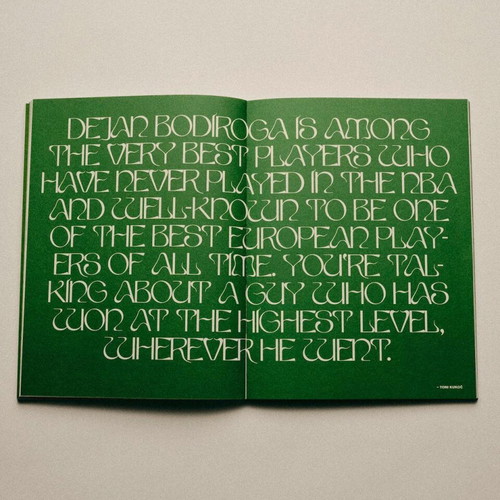 DEJAN BODIROGA IS AMONG
THE VERY BEST PLAYERS WHO
HAVE NEVER PLAYED IN THE NBA
AND WELL-KNOWN TO BE ONE
OF THE BEST EUROPEAN PLAY-
ERS OF ALL TIME. YOU'RE TAL-
KING ABOUT A GUY WHO HAS
WON AT THE HIGHEST LEVEL,
WHEREVER HE WENT.
– TONI KUKOČ